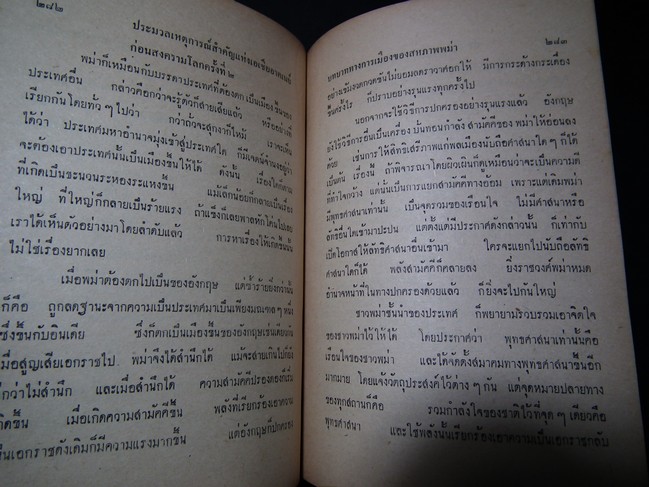 ๒๘๒
ประมวลเหตุการณ์สำคัญแห่งเอเซียอาคเนย์
ก่อนสงครามโลกครั้งที่ ๒
พม่าก็เหมือนกับบรรดาประเทศที่ต้องตกเป็นเมืองขึ้นของ
ประเทศอื่น กล่าวคือกว่าจะรู้ตัวก็สายเสียแล้ว หรืออย่างที่
เรียกกันโดยทั่ว ๆ ไปว่า กว่าถั่วจะสุกงาก็ไหม้ เราจะเห็น
ได้ว่า ประเทศมหาอำนาจมุ่งเข้าสู่ประเทศใด ก็มีเจตน์จำนงอยู่ว่า
จะต้องเอาประเทศนั้นเป็นเมืองขึ้นให้ได้ ดังนั้น เรื่องใดก็ตาม
ที่เกิดเป็นชะนวนระหองระแหงขึ้น แม้เล็กน้อยก็กลายเป็นเรื่อง
ใหญ่ ที่ใหญ่ก็กลายเป็นร้ายแรง ถ้าแข็งก็เลยพาลหักโค่นไปเลย
เราได้เห็นตัวอย่างมาโดยลำดับแล้ว การหาเรื่องให้เกิดขึ้นนั้น
ไม่ใช่เรื่องยากเลย
เมื่อพม่าต้องตกไปเป็นของอังกฤษ แต่ซ้ำร้ายยิ่งกว่านั้น
ก็คือ ถูกลดฐานะจากความเป็นประเทศมาเป็นเพียงมณฑล ๆ หนึ่ง
ซึ่งขึ้นกับอินเดีย ซึ่งก็ตกเป็นเมืองขึ้นของอังกฤษเช่นเดียวกัน
เมื่อสูญเสียเอกราชไป พม่าจึงได้สำนึกได้ แม้จะสายเกินไปก็ยังดี
กว่าไม่สำนึก และเมื่อสำนึกได้ ความสามัคคีปรองดองก็เริ่ม
เกิดขึ้น เมื่อเกิดความสามัคคีขึ้น พลังที่เรียกร้องเอาความ
เป็นเอกราชดังเดิมก็มีความแรงมากขึ้น แต่อังกฤษก็ปกครอง
บทบาททางการเมืองของสหภาพพม่า
๒๘๓
อย่างเข้มงวดกวดขันไม่ยอมลดราวาศอกให้ มีการกระด้างกระเดื่อง
ขึ้นครั้งไร ก็ปราบอย่างรุนแรงทุกครั้งไป
นอกจากจะใช้วิธีการปกครองอย่างรุนแรงแล้ว อังกฤษ
ยังใช้วิธีการอื่นเป็นเครื่องบั่นทอนกำลังสามัคคีของพม่าให้อ่อนลง
ด้วย เช่นการให้สิทธิเสรีภาพแก่พลเมืองนับถือศาสนาใด ๆ ก็ได้
เป็นต้น เรื่องนี้ ถ้าพิจารณาโดยผิวเผินก็ดูเหมือนว่าจะเป็นความดี
ที่ทำใจกว้าง แต่นั่นก็เป็นการแยกสามัคคีทางอ้อม เพราะแต่เดิมพม่า
มีพุทธศาสนาเท่านั้น เป็นจุดรวมของเรือนใจ ไม่มีศาสนาหรือ
ลัทธิอื่นใดเข้ามาปะปน แต่ตั้งแต่มีประกาศดังกล่าวนั้น ก็เท่ากับ
เปิดโอกาสให้ลัทธิศาสนาอื่นเข้ามา ใครจะแยกไปนับถือลัทธิ
ศาสนาใดก็ได้ พลังสามัคคีก็คลายลง ยิ่งราชวงศ์พม่าหมด
อำนาจหน้าที่ในทางปกครองด้วยแล้ว ก็ยิ่งจะไปกันใหญ่
ชาวพม่าชั้นนำของประเทศ ก็พยายามรวบรวมเอาจิตใจ
ของชาวพม่าไว้ให้ได้ โดยประกาศว่า พุทธศาสนาเท่านั้นคือ
เรือนใจของชาวพม่า และได้จัดตั้งสมาคมทางพุทธศาสนาขึ้นอีก
มากมาย โดยแจ้งวัตถุประสงค์ไว้ต่าง ๆ กัน แต่จุดหมายปลายทาง
ของทุกสถานก็คือ รวมกำลังใจของชาติไว้ที่จุด ๆ เดียวคือ
พุทธศาสนา และใช้พลังนั้นเรียกร้องเอาความเป็นเอกราชกลับ